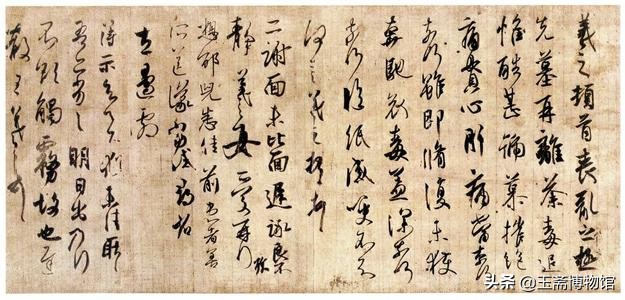 羲之頓首喪亂之極
先墓再離荼毒追
惟酷甚號慕摧絕
痛貫心肝痛當奈何
奈何雖即脩復未獲
奔馳哀毒益深奈何
奈何臨紙感哽不知
何言羲之頓首頓首
二謝面未比面遲詠良不
靜羲之女愛再拜
想邰兒悉佳前患者善
所送議當試尋省
左邊劇
得示知足下猶未佳耿耿
吾亦劣劣明日出乃行
不欲觸霧故也遲
散王羲之頓首
头条 @玉斋博物馆